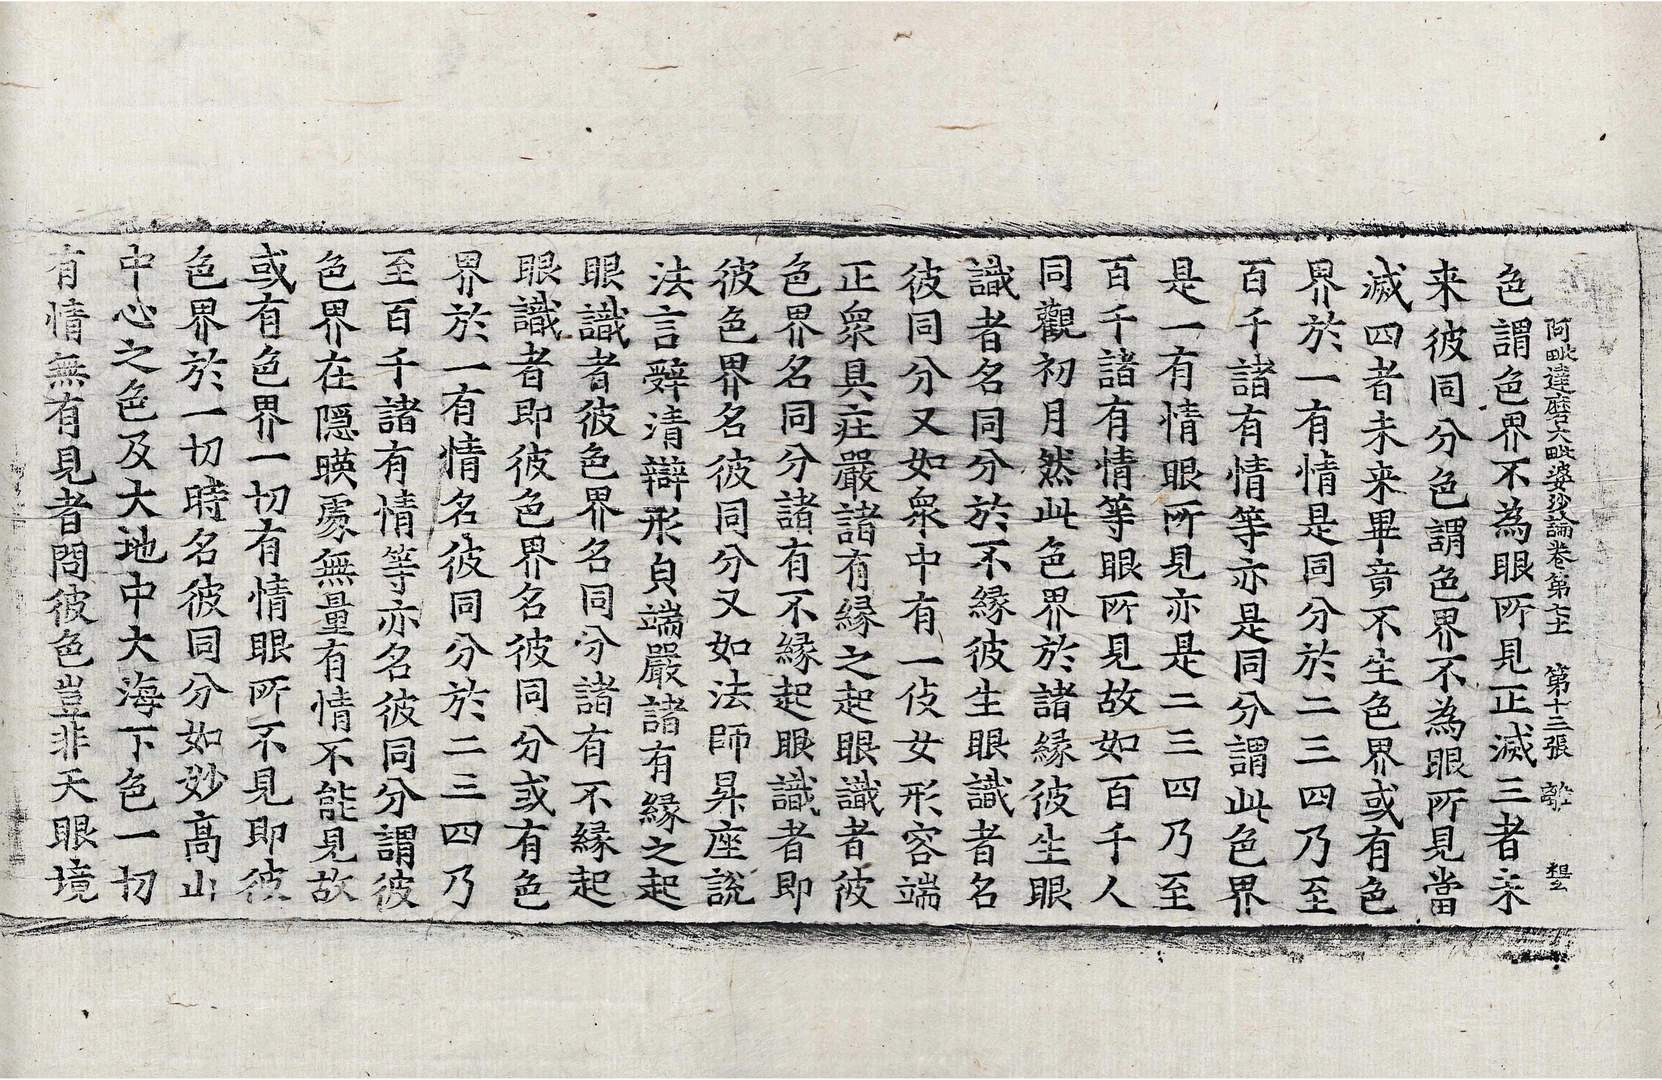 阿毗達磨大毗婆沙論卷第七十一 第十三張 離
色謂色界不為眼所見正滅三者未
来彼同分色謂色界不為眼所見當
滅四者未来畢竟不生色界或有色
界於一有情是同分於二三四乃至
百千諸有情等亦是同分謂此色界
是一有情眼所見亦是二三四乃至
百千諸有情等眼所見故如百千人
同觀初月然此色界於諸縁彼生眼
識者名同分於不縁彼生眼識者名
彼同分又如衆中有一伎女形容端
正衆具莊嚴諸有縁之起眼識者彼
色界名同分諸有不縁起眼識者即
彼色界名彼同分又如法師昇座說
法言辭清辯形皃端嚴諸有縁之起
眼識者彼色界名同分諸有不縁起
眼識者即彼色界名彼同分或有色
界於一有情名彼同分於二三四乃
至百千諸有情等亦名彼同分謂彼
色界在隱暎處無量有情不能見故
或有色界一切有情眼所不見即彼
色界於一切時名彼同分如妙高山
中心之色及大地中大海下色一切
有情無有見者問彼色豈非天眼境